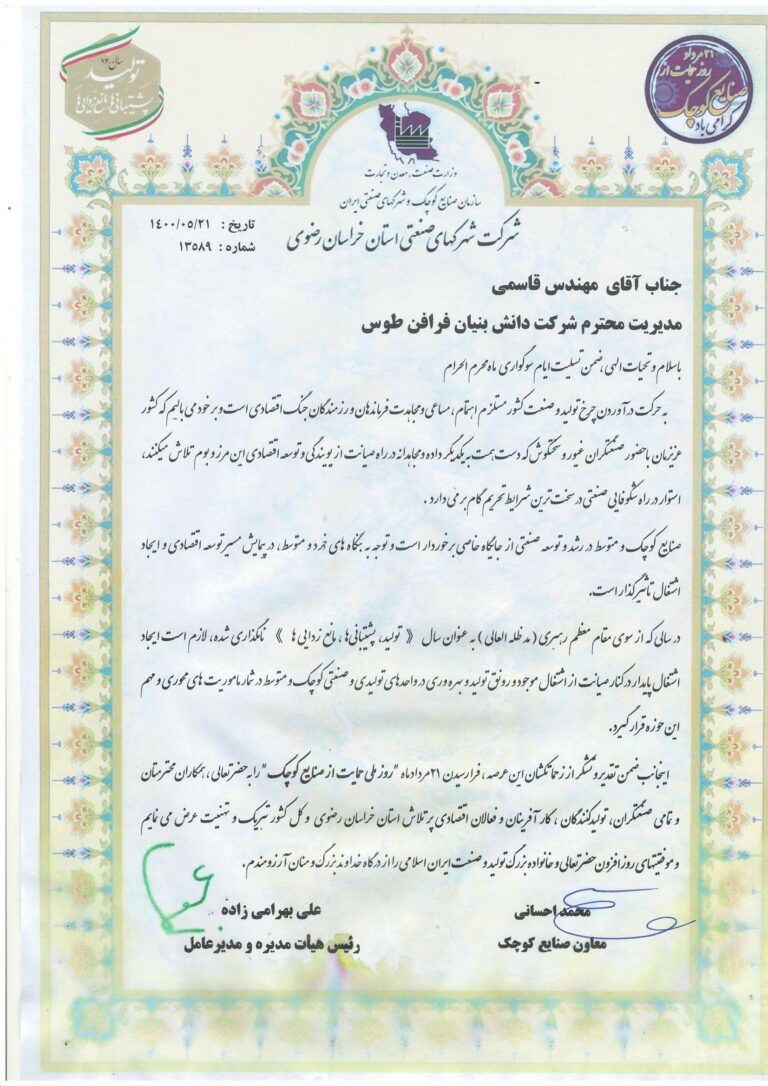 سال ۱۴۰۰
تولید
پشتیبانی‌ها، مانع زدایی‌ها
۲۱ مرداد
روز حمایت از
صنایع کوچک
گرامی باد
وزارت صنعت، معدن و تجارت
سازمان صنایع کوچک و شهرکهای صنعتی ایران
شرکت شهرکهای صنعتی استان خراسان رضوی
تاریخ : ۱۴۰۰/۰۵/۲۱
شماره : ۱۳۵۸۹
جناب آقای مهندس قاسمی
مدیریت محترم شرکت دانش بنیان فرافن طوس
باسلام و تحیات الهی، ضمن تسلیت ایام سوگواری ماه محرم الحرام
به حرکت درآوردن چرخ تولید و صنعت کشور مستلزم اهتمام، مساعی و مجاهدت فرماندهان و رزمندگان جنگ اقتصادی است و بر خود می بالیم که کشور
عزیزمان با حضور صنعتگران غیور و سختکوش که دست همت به یکدیگر داده و مجاهدانه در راه صیانت از پویندگی و توسعه اقتصادی این مرز و بوم تلاش میکنند،
استوار در راه شکوفایی صنعتی در سخت ترین شرایط تحریم گام بر می دارد .
صنایع کوچک و متوسط در رشد و توسعه صنعتی از جایگاه خاصی برخوردار است و توجه به بنگاه های خرد و متوسط، در پیمایش مسیر توسعه اقتصادی و ایجاد
اشتغال تاثیرگذار است.
در سالی که از سوی مقام معظم رهبری ( مد ظله العالی ) به عنوان سال 《 تولید، پشتیبانی‌ها، مانع زدایی ها 》 نامگذاری شده، لازم است ایجاد
اشتغال پایدار در کنار صیانت از اشتغال موجود و رونق تولید و بهره وری در واحدهای تولیدی و صنعتی کوچک و متوسط در شمار ماموریت های محوری و مهم
این حوزه قرار گیرد.
اینجانب ضمن تقدیر و تشکر از زحمتکشان این عرصه، فرارسیدن ۲۱ مرداد ماه "روز ملی حمایت از صنایع کوچک" را به حضرتعالی، همکاران محترمتان
و تمامی صنعتگران، تولیدکنندگان ، کارآفرینان و فعالان اقتصادی پرتلاش استان خراسان رضوی و کل کشور تبریک و تهنیت عرض می نمایم
و موفقیتهای روزافزون حضرتعالی و خانواده بزرگ تولید و صنعت ایران اسلامی را از درگاه خداوند بزرگ و منان آرزومندم.
محمد احسانی
معاون صنایع کوچک
علی بهرامی زاده
رئیس هیأت مدیره و مدیرعامل